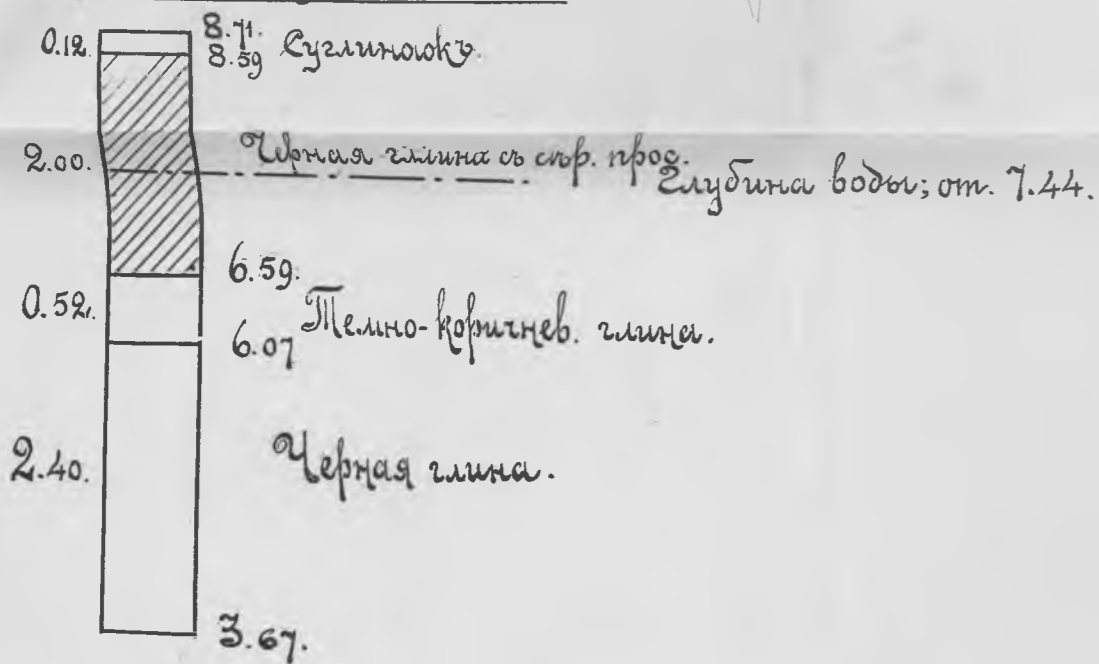 0.12. 8.71.
8.59 Суглинокъ.
2.00. Черная глина съ сѣр. прос.
Глубина воды; от. 7.44.
6.59.
0.52. Темно-коричнев. глина.
6.07
2.40. Черная глина.
3.67.